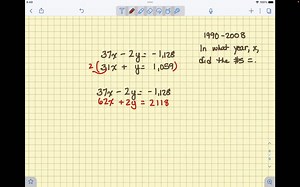 37x − 2y = −1,128
2(31x + y = 1,059)
37x − 2y = −1,128
62x + 2y = 2118
1990-2008
In what year, x,
did the #s =.